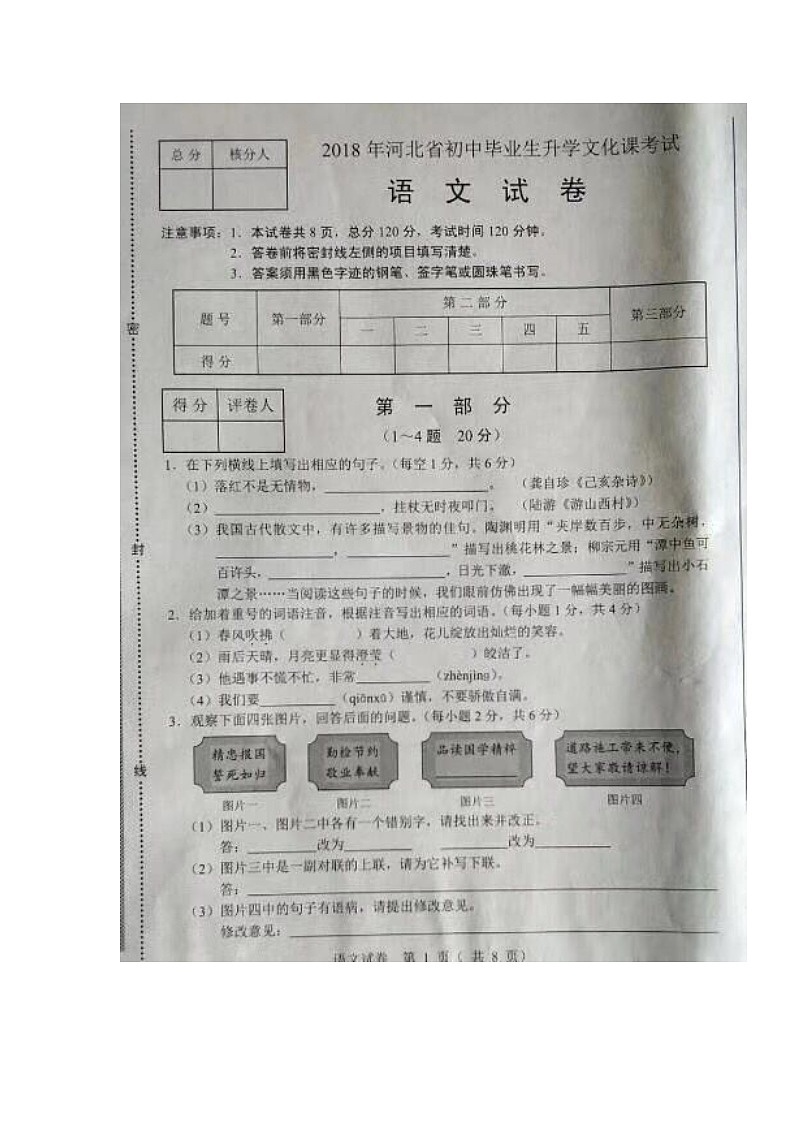 2018 年河北省初中毕业生升学文化课考试
总 分 核分人
语 文 试 卷
注意事项：1．本试卷共 8 页，总分 120 分，考试时间 120 分钟。
2．答卷前将密封线左侧的项目填写清楚。
3．答案须用黑色字迹的钢笔、签字笔或圆珠笔书写。
题 号 第一部分 第 二 部 分 第三部分
一 二 三 四 五
得 分
得 分 评卷人
第 一 部 分
（1～4 题 20 分）
1．在下列横线上填写出相应的句子。（每空 1 分，共 6 分）
（1）落红不是无情物，____________。 （龚自珍《己亥杂诗》）
（2）____________，拄杖无时夜叩门。 （陆游《游山西村》）
（3）我国古代散文中，有许多描写景物的佳句。陶渊明用“夹岸数百步，中无杂树，
____________，____________”描写出桃花林之景；柳宗元用“潭中鱼可
百许头，____________，日光下澈，____________”描写出小石
潭之景……当阅读这些句子的时候，我们眼前仿佛出现了一幅幅美丽的图画。
2．给加着重号的词语注音，根据注音写出相应的词语。（每小题 1 分，共 4 分）
（1）春风吹拂（ ）着大地，花儿绽放出灿烂的笑容。
（2）雨后天晴，月亮更显得澄莹（ ）皎洁了。
（3）他遇事不慌不忙，非常________（zhènjìng）。
（4）我们要________（qiānxū）谨慎，不要骄傲自满。
3．观察下面四张图片，回答后面的问题。（每小题 2 分，共 6 分）
精忠报国
誓死如归
勤检节约
敬业奉献
品读国学精粹
____________
道路施工带来不便，
望大家敬请谅解！
图片一 图片二 图片三 图片四
（1）图片一、图片二中各有一个错别字，请找出来并改正。
答：________改为________ ________改为________
（2）图片三中是一副对联的上联，请为它补写下联。
答：____________
（3）图片四中的句子有语病，请提出修改意见。
修改意见：____________
语文试卷 第 1 页（ 共 8 页）
密
封
线